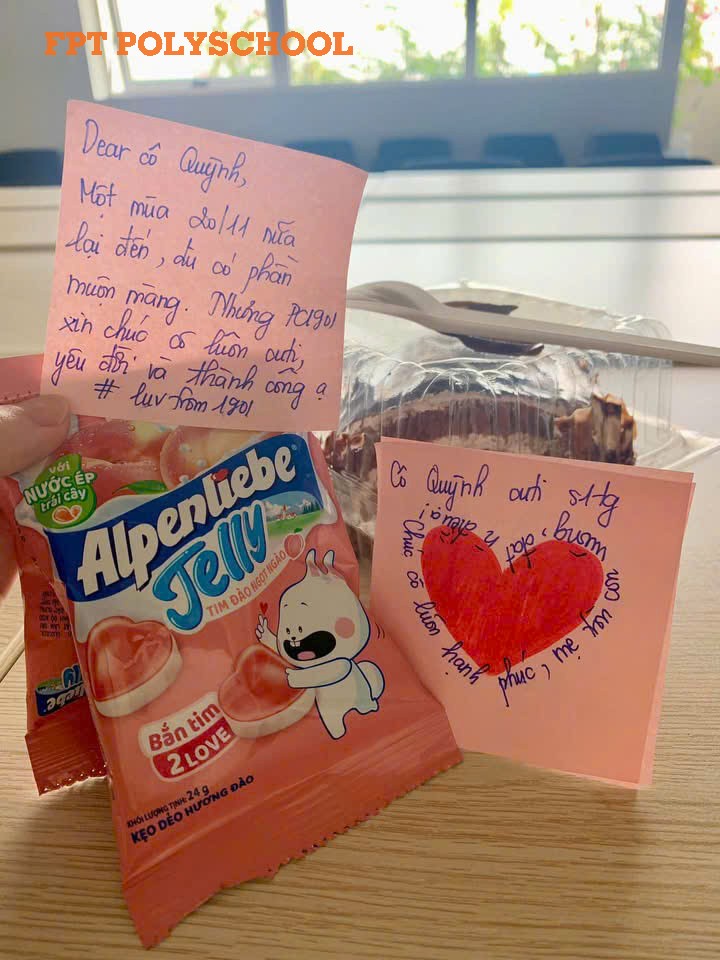 FPT POLYSCHOOL
Dear cô Quỳnh,
Một mùa 20/11 nữa
lại đến, dù có phần
muộn màng. Nhưng PC1901
xin chúc cô luôn cuti,
yêu đời và thành công ạ
# luv from 1901
với
NƯỚC ÉP
trái cây
Alpenliebe
Jelly
TIM ĐÀO NGỌT NGÀO
Bắn tim
2 LOVE
KHỐI LƯỢNG TỊNH: 24 g
KẸO DẺO HƯƠNG ĐÀO
Cô Quỳnh cuti
Chúc cô luôn hạnh phúc, mẹ tròn con vuông